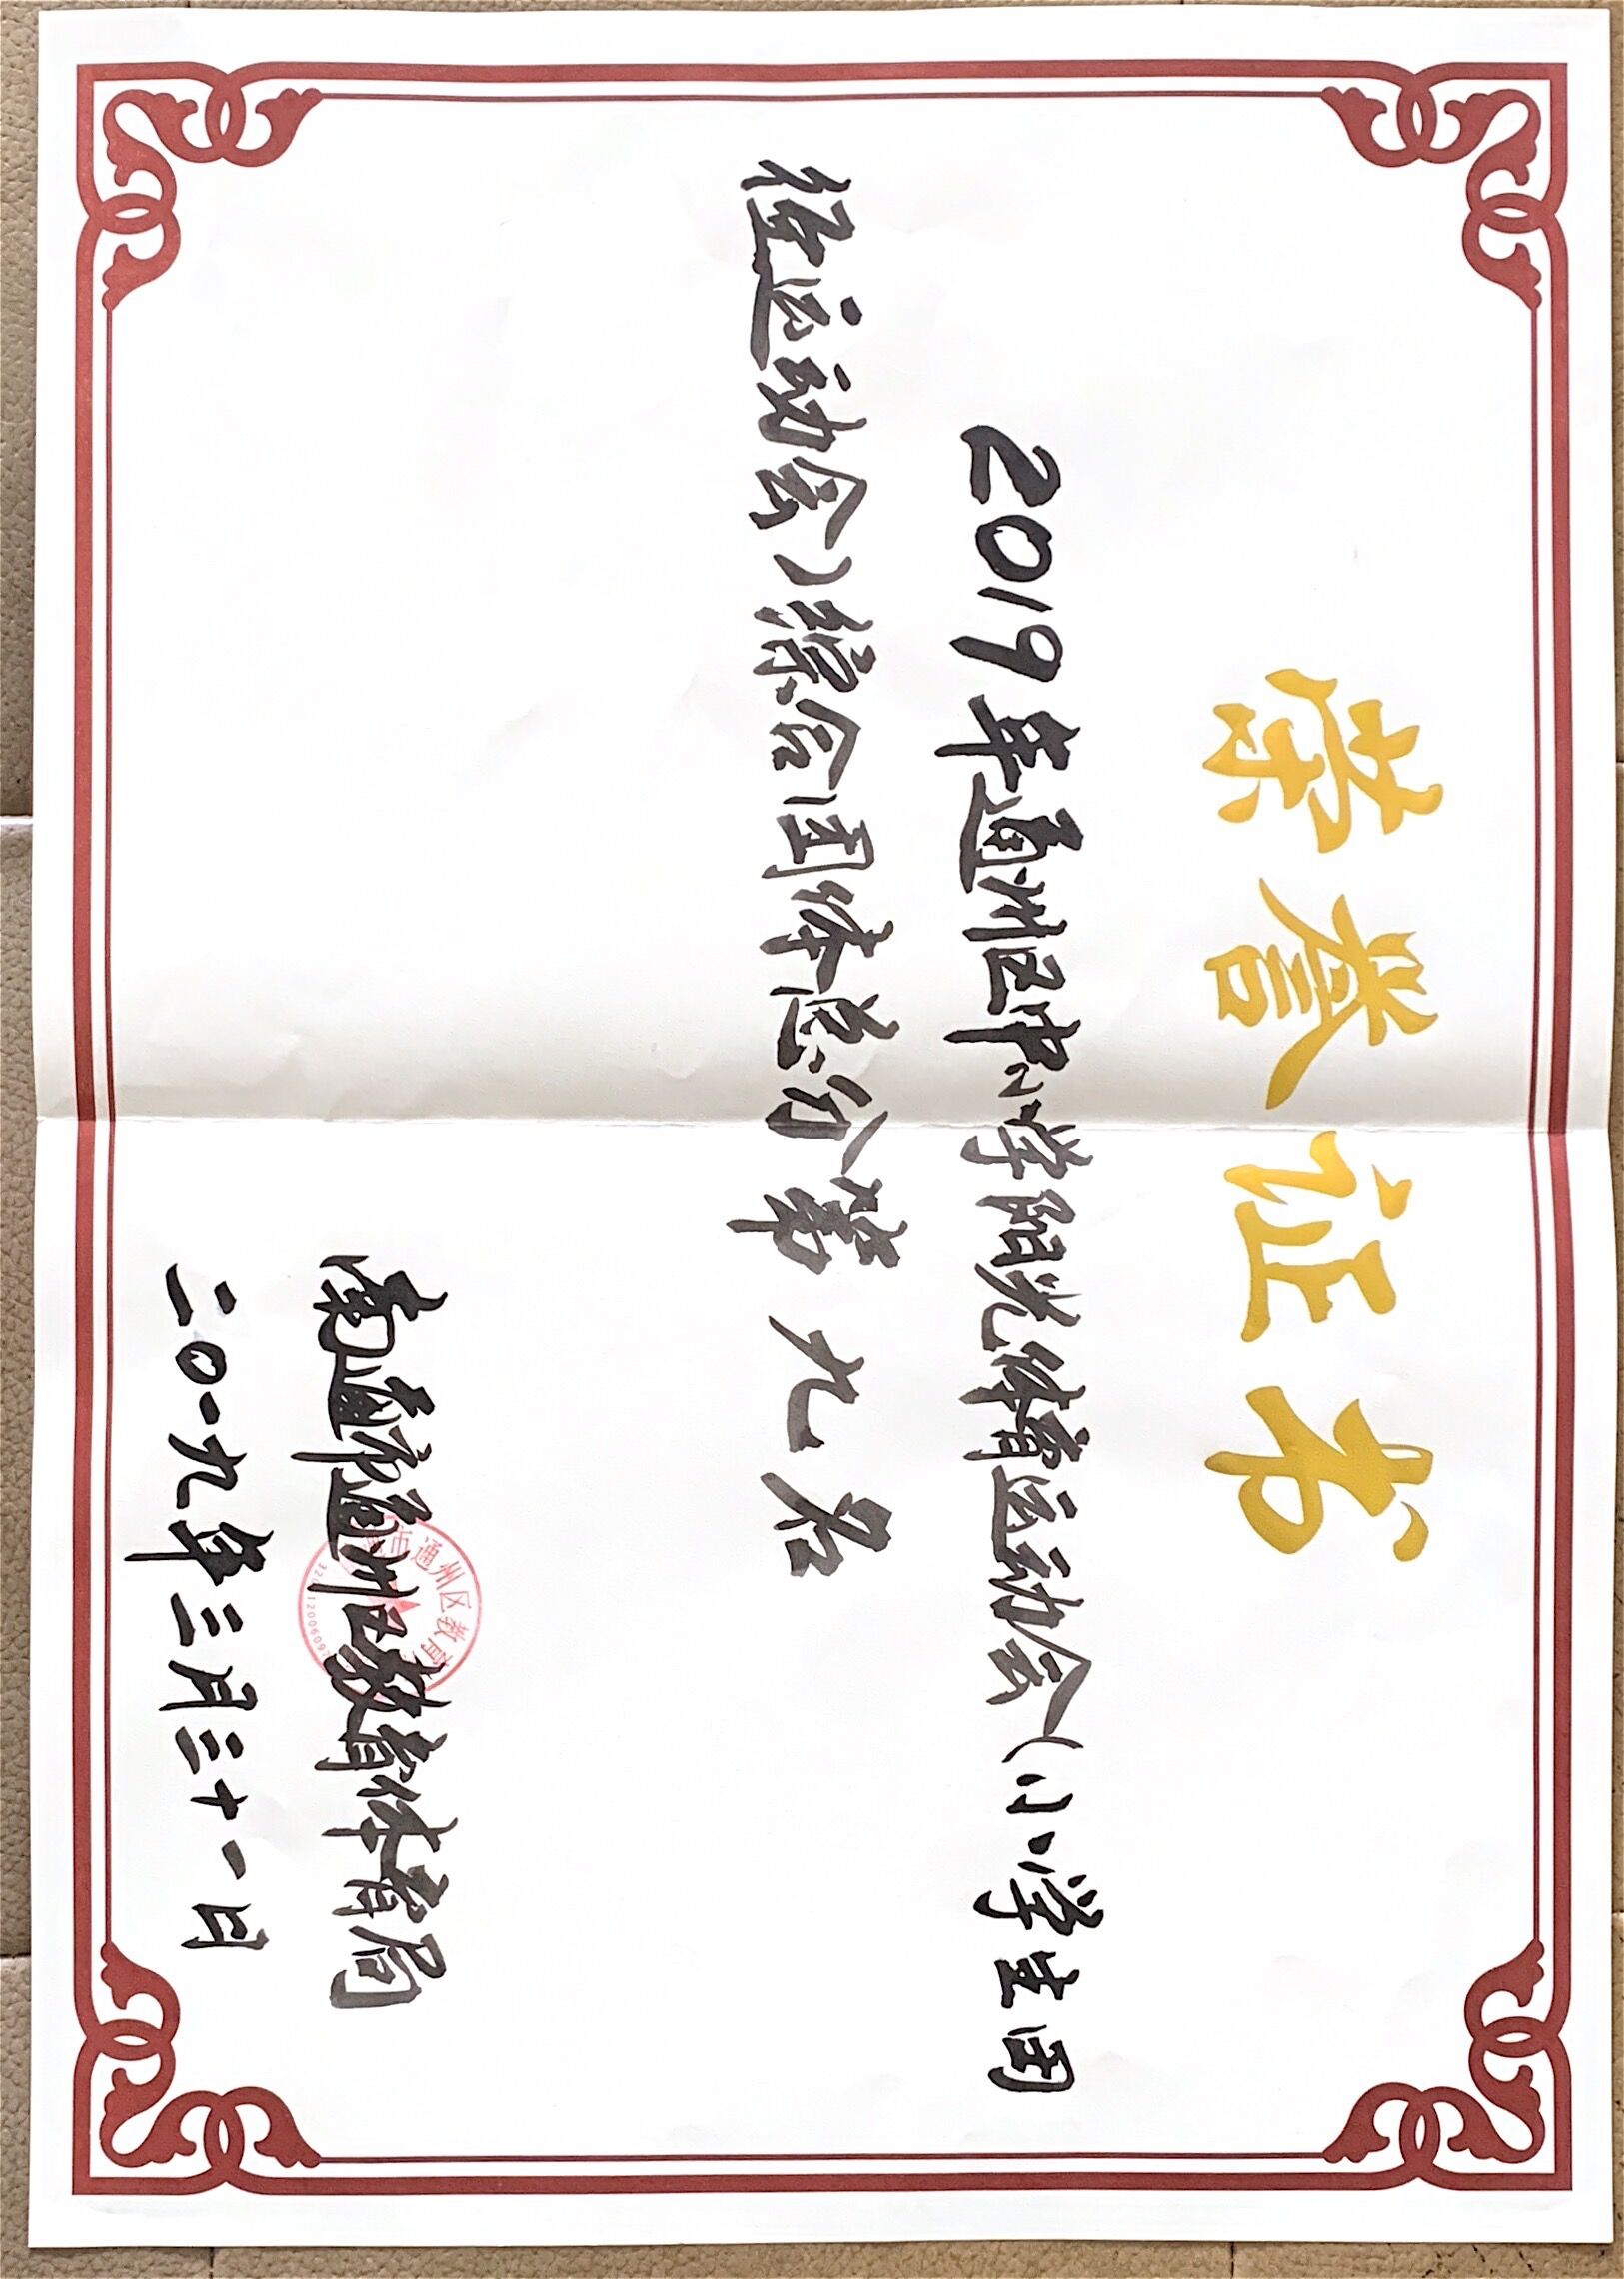 荣誉证书
2019年通州区中小学阳光体育运动会(小学生田
径运动会)综合团体总分第九名
南通市通州区教育体育局
市通州区教育
二〇一九年三月三十一日